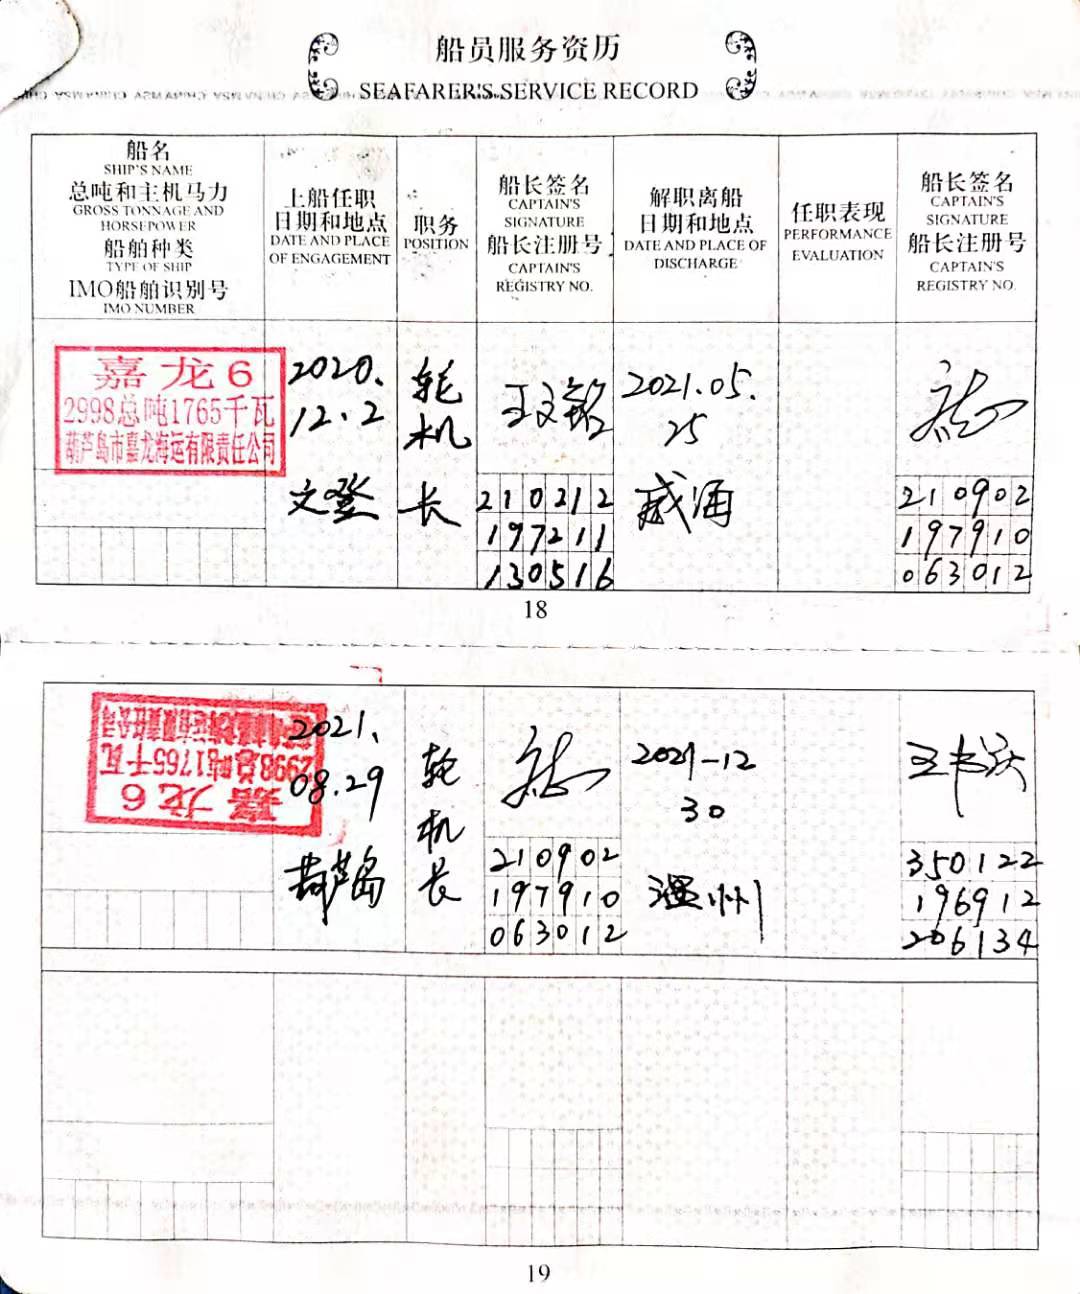 船员服务资历
SEAFARER'S SERVICE RECORD
船名
SHIP'S NAME
总吨和主机马力
GROSS TONNAGE AND
HORSEPOWER
船舶种类
TYPE OF SHIP
IMO船舶识别号
IMO NUMBER
上船任职
日期和地点
DATE AND PLACE
OF ENGAGEMENT
职务
POSITION
船长签名
CAPTAIN'S
SIGNATURE
船长注册号
CAPTAIN'S
REGISTRY NO.
解职离船
日期和地点
DATE AND PLACE OF
DISCHARGE
任职表现
PERFORMANCE
EVALUATION
船长签名
CAPTAIN'S
SIGNATURE
船长注册号
CAPTAIN'S
REGISTRY NO.
嘉龙6
2998总吨1765千瓦
葫芦岛市嘉龙海运有限责任公司
2020.
12.2
文登
轮
机
长
王文铭
210212
197211
130516
2021.05.
25
威海
210902
197910
063012
18
嘉龙6
2998总吨1765千瓦
葫芦岛市嘉龙海运有限责任公司
2021.
08.29
葫芦岛
轮
机
长
210902
197910
063012
2021-12
30
温州
350122
196912
206134
19